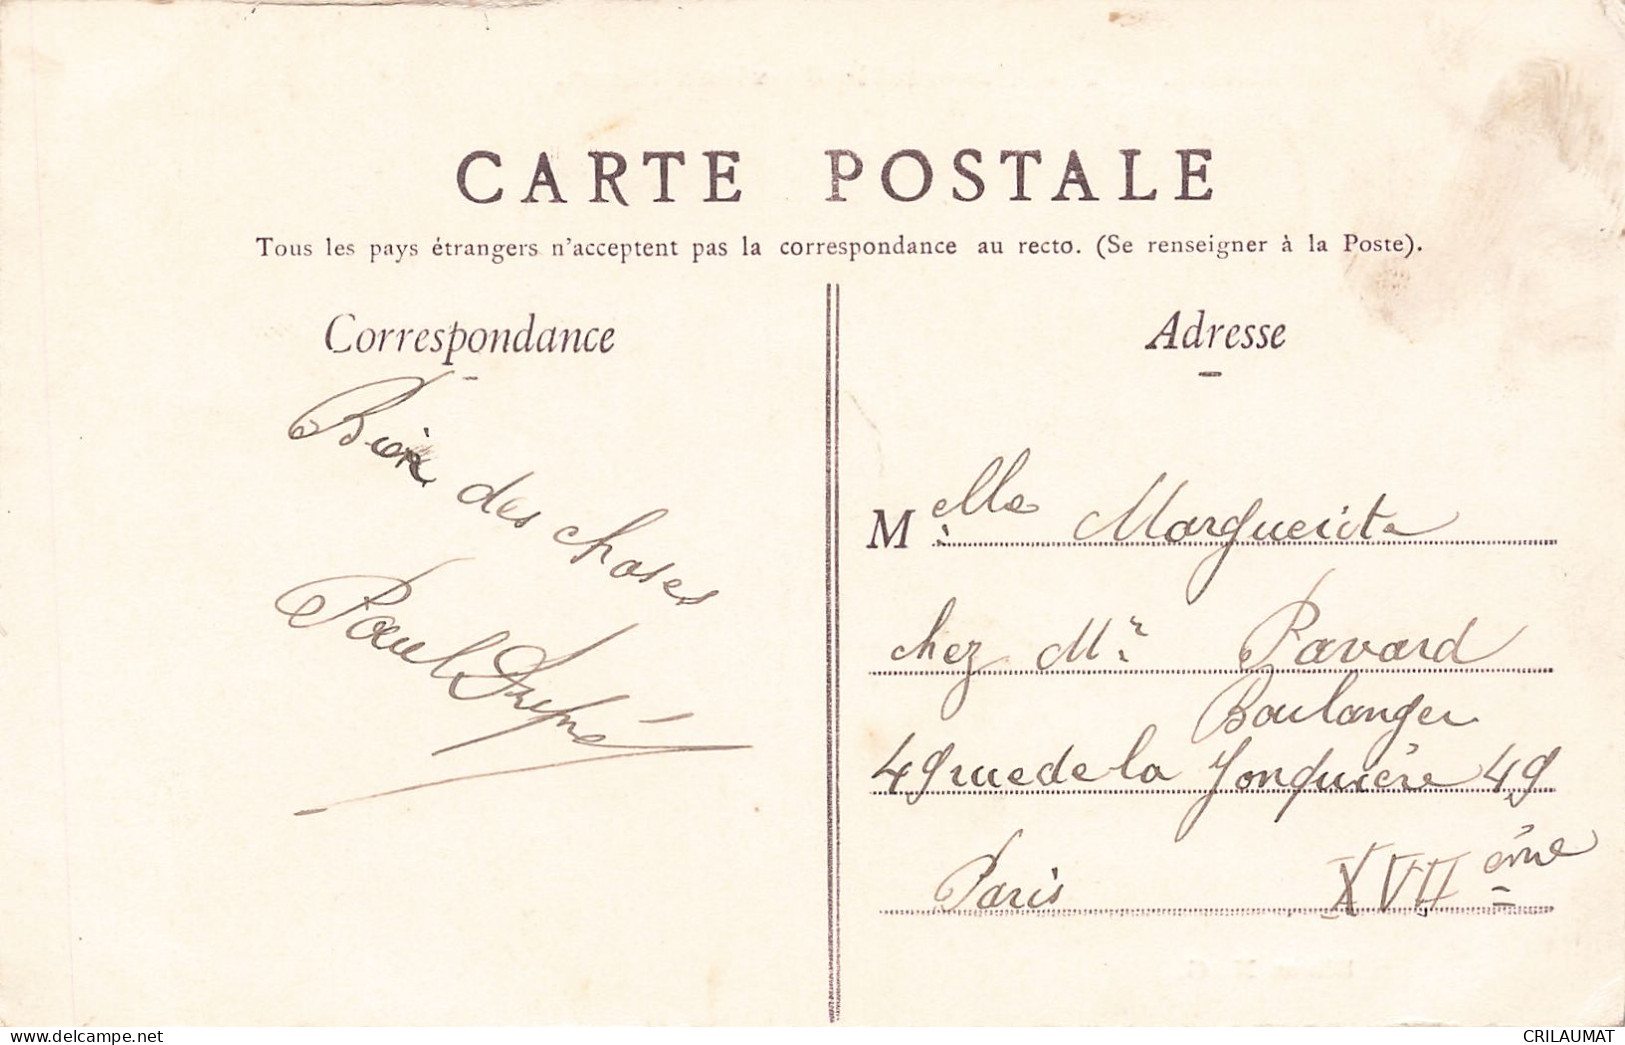 CARTE POSTALE
Tous les pays étrangers n'acceptent pas la correspondance au recto. (Se renseigner à la Poste).
Correspondance
Bien des choses
Paul Dupré
Adresse
Melle Marguerite
chez Mr Pavard
Boulanger
49 rue de la Jonquière 49
Paris XVII ème
www.delcampe.net
CRILAUMAT